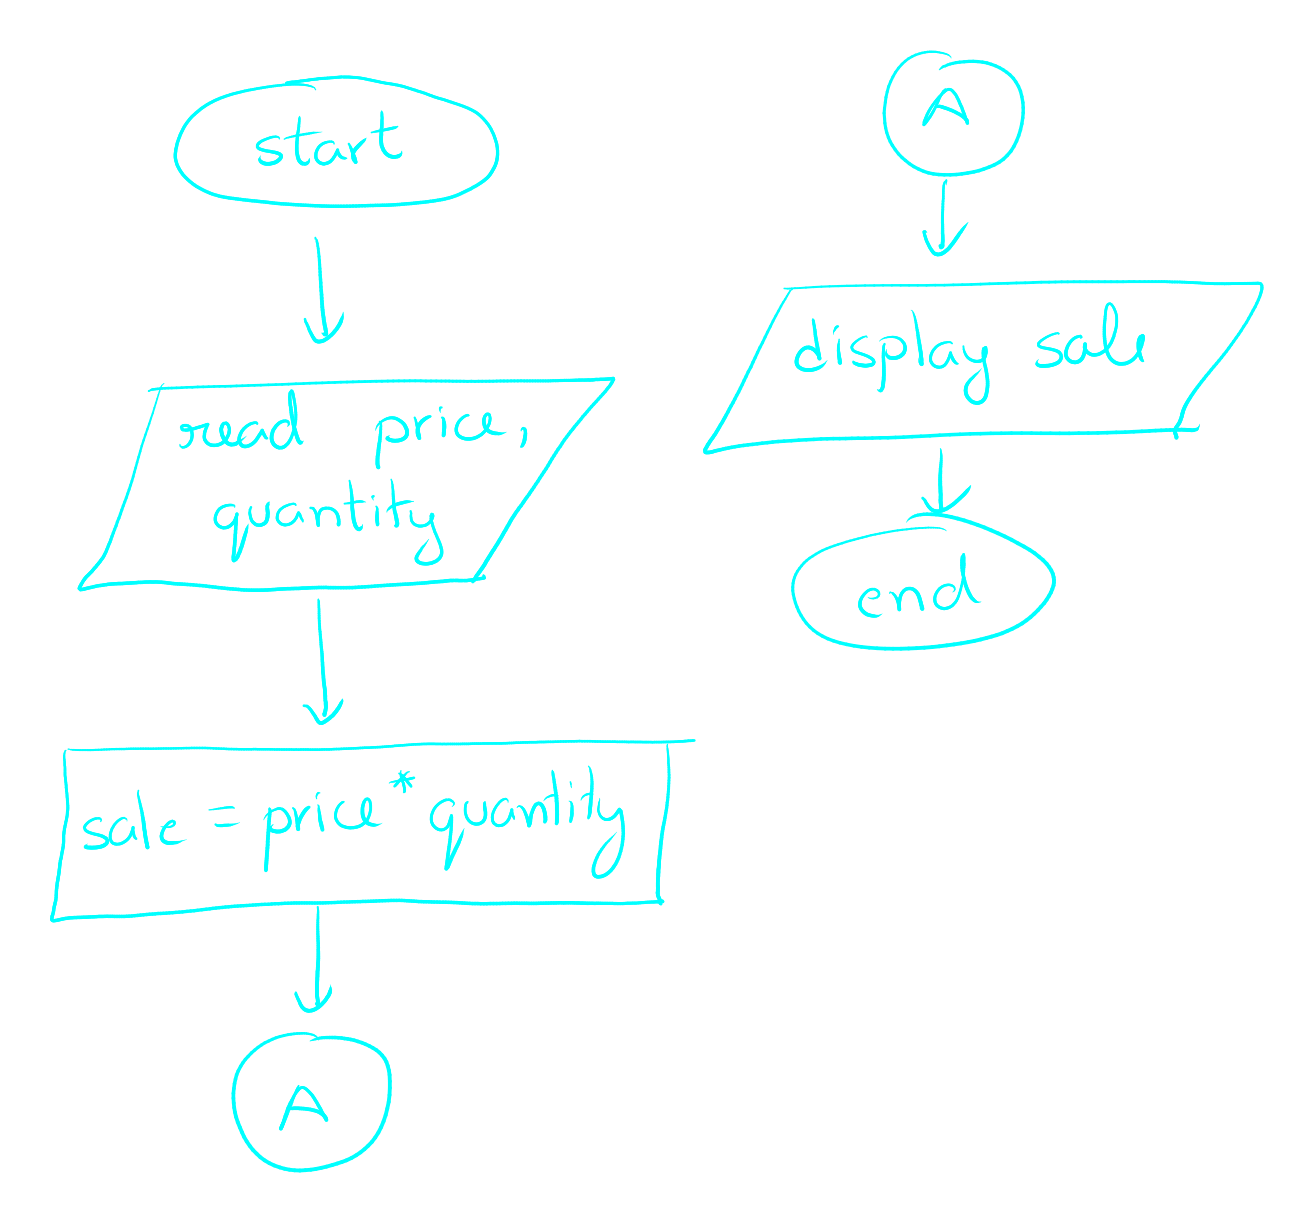 start
read price,
quantity
sale = price * quantity
A
A
display sale
end